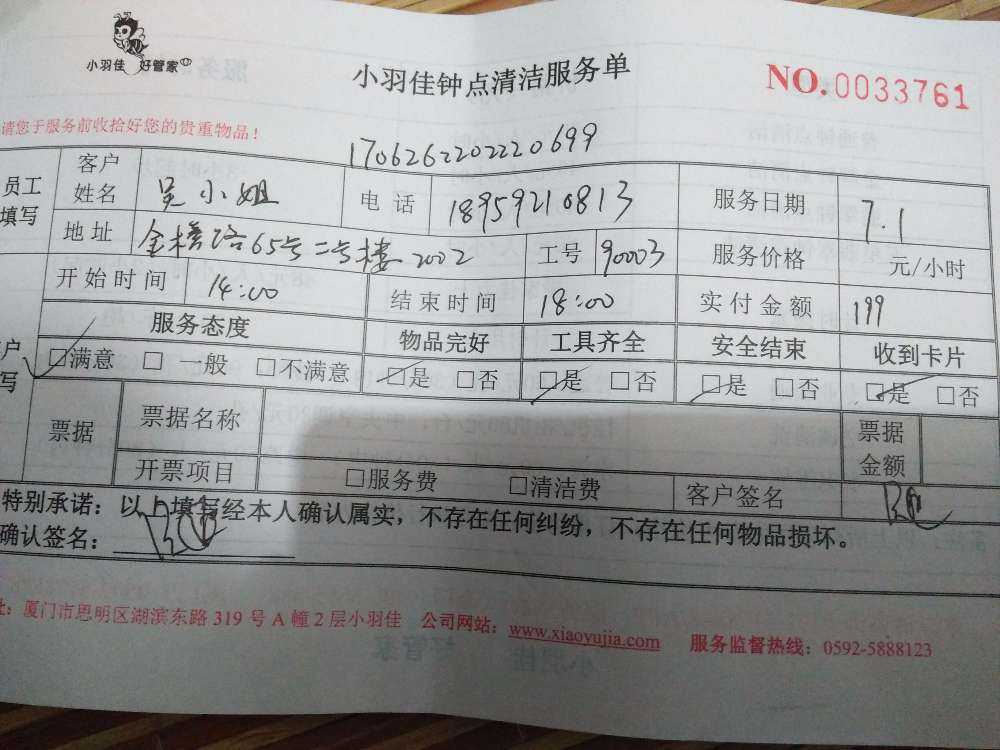 小羽佳 好管家
小羽佳钟点清洁服务单
NO.0033761
请您于服务前收拾好您的贵重物品！
1706262202220699
员工填写 客户姓名 吴小姐 电话 18959210813 服务日期 7.1
地址 金榜路65号二号楼2002 工号 90003 服务价格 元/小时
开始时间 14:00 结束时间 18:00 实付金额 199
服务态度 物品完好 工具齐全 安全结束 收到卡片
户写 ☑满意 □ 一般 □不满意 ☑是 □否 ☑是 □否 ☑是 □否 ☑是 □否
票据 票据名称 票据金额
开票项目 □服务费 □清洁费 客户签名
特别承诺：以上填写经本人确认属实，不存在任何纠纷，不存在任何物品损坏。
确认签名：
址：厦门市思明区湖滨东路 319 号 A 幢 2 层小羽佳 公司网站：www.xiaoyujia.com 服务监督热线：0592-5888123